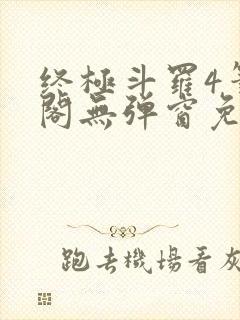 终極斗羅4
閣無彈窗免
跑去機場看灰